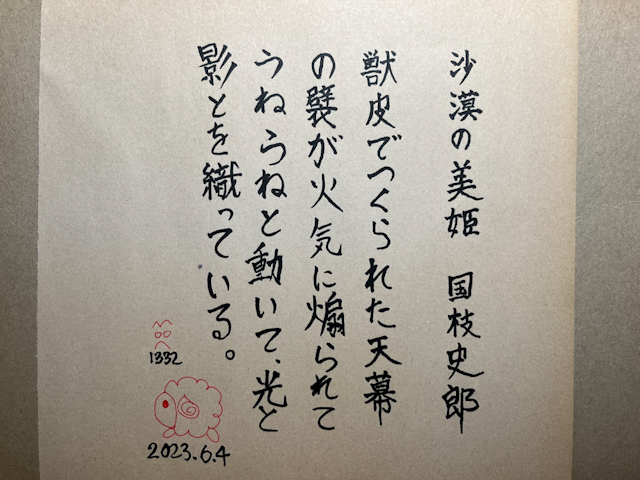 沙漠の美姫　国枝史郎
獣皮でつくられた天幕
の襞が火気に煽られて
うねうねと動いて、光と
影とを織っている。
1332
2023.6.4